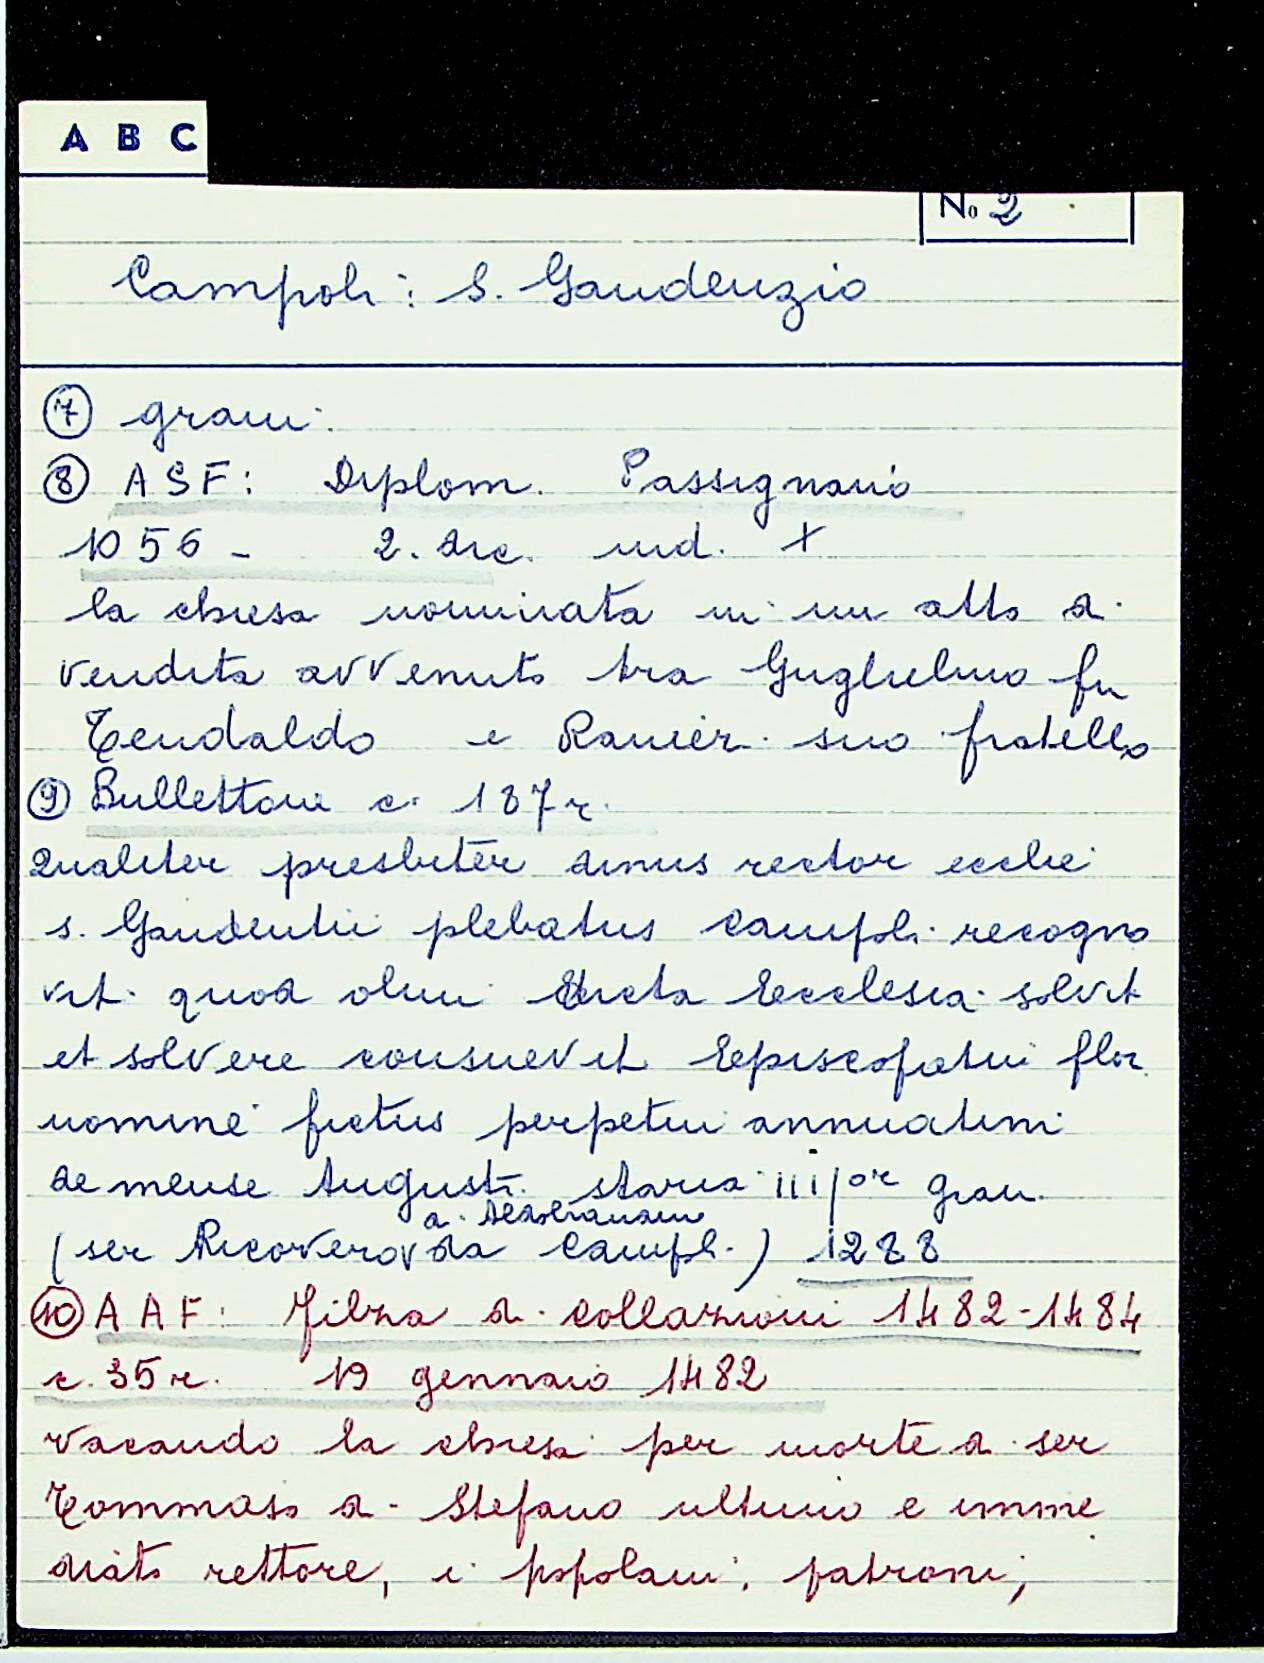 A B C
No 2
Campoli: S. Gaudenzio
⑦ grani.
⑧ ASF: Diplom. Passignano
1056 - 2. dic. ind. X
la chiesa nominata in un atto di
vendita avvenuto tra Guglielmo fu
Teudaldo e Ranieri suo fratello
⑨ Bullettone c. 187 r.
Qualiter presbiter dinus rector ecclie
s. Gaudentii plebatus Campoli recogno
vit quod olim dicta Ecclesia solvit
et solvere consuevit Episcopatui flor.
nomine fictus perpetui annuatim
de mense Augusti staria iii/or grani
a. Aldobrandini
(ser Ricovero v da Campoli) 1288
⑩ AAF: Filza di collazioni 1482-1484
c. 35 r. 19 gennaio 1482
vacando la chiesa per morte di ser
Tommaso di Stefano ultimo e imme
diato rettore, i popolani, patroni,